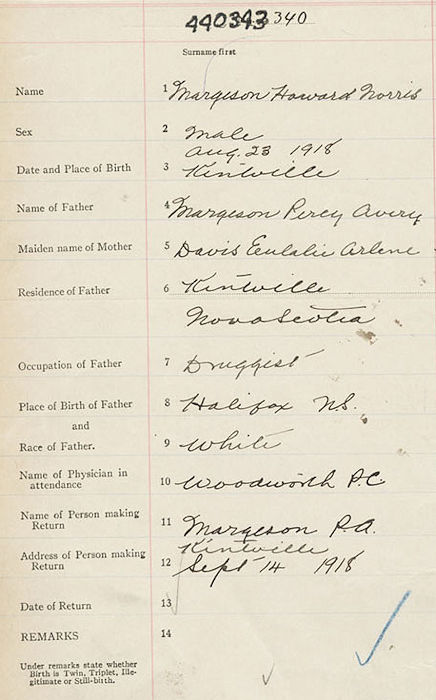 440343 340
Surname first
Name 1 Margeson Howard Norris
Sex 2 Male
Aug. 23 1918
Date and Place of Birth 3 Kintville
Name of Father 4 Margeson Percy Avery
Maiden name of Mother 5 Davis Eulalie Arlene
Residence of Father 6 Kintville
Nova Scotia
Occupation of Father 7 Druggist
Place of Birth of Father 8 Halifax N.S.
and
Race of Father. 9 White
Name of Physician in
attendance 10 Woodworth P.C.
Name of Person making
Return 11 Margeson P.A.
Address of Person making Kintville
Return 12 Sept 14 1918
Date of Return 13
REMARKS 14
Under remarks state whether
Birth is Twin, Triplet, Ille-
gitimate or Still-birth.